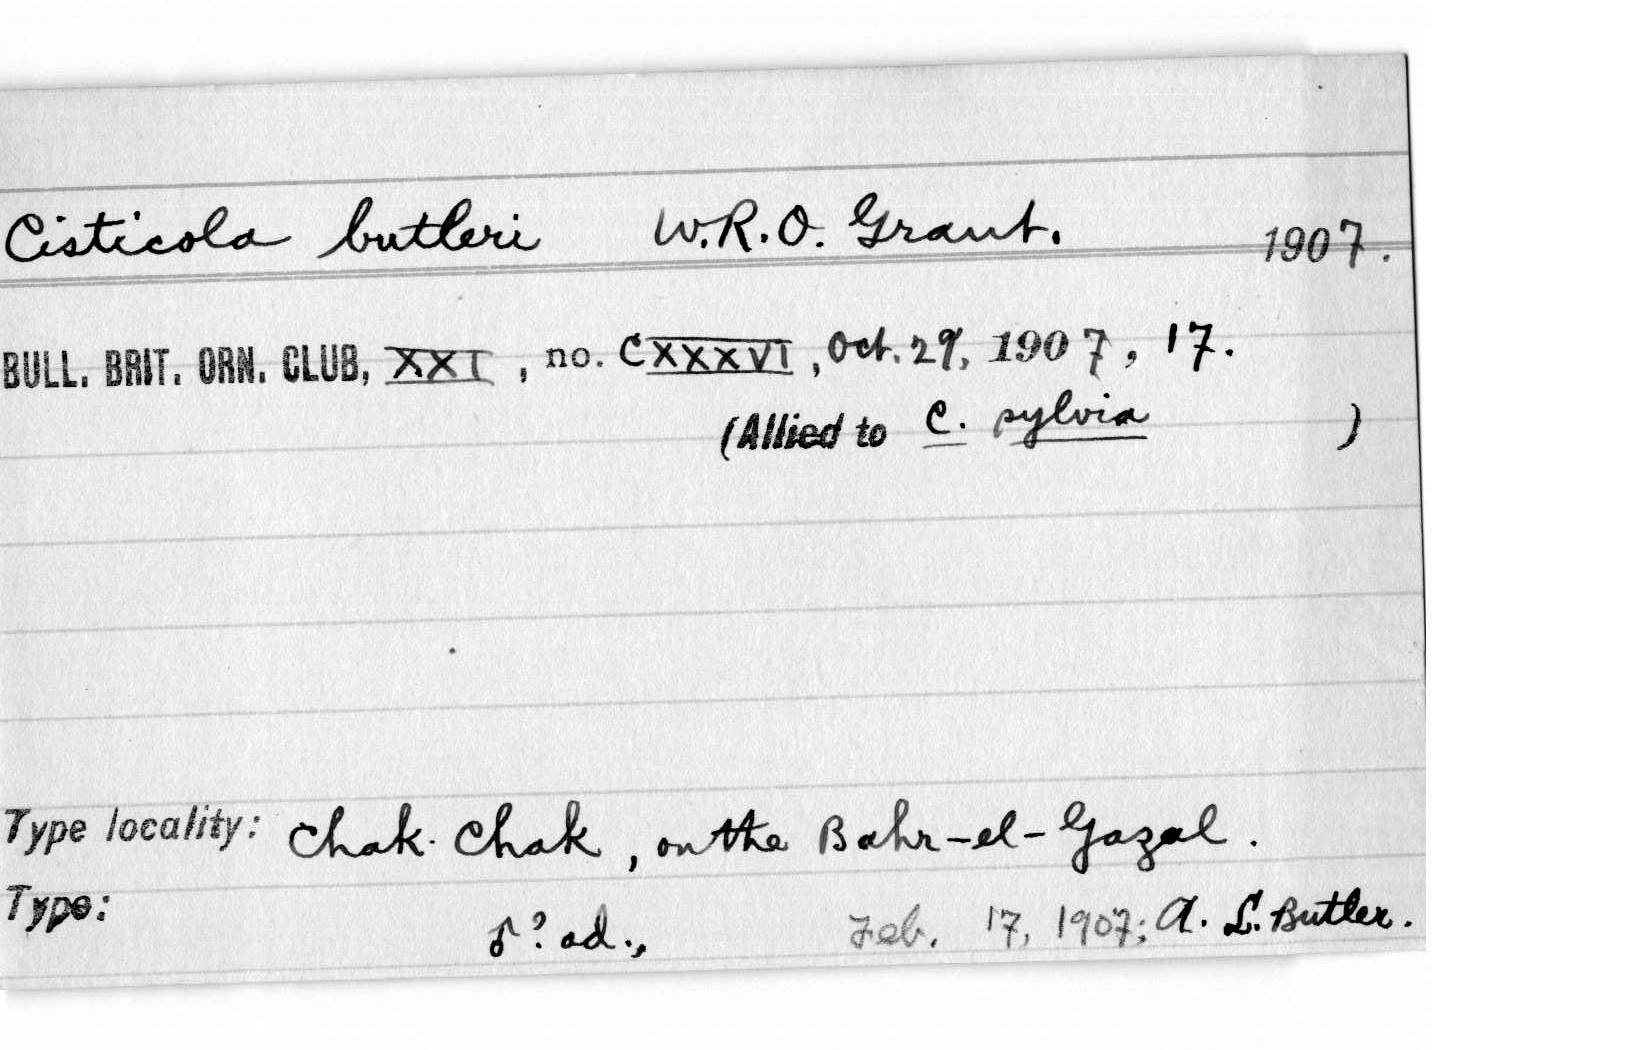 Cisticola butleri W.R.O. Grant. 1907.
BULL. BRIT. ORN. CLUB, XXI, no. CXXXVI, Oct. 29, 1907, 17.
(Allied to C. sylvia )
Type locality: Chak Chak, on the Bahr-el-Gazal.
Type: ♂? ad., Feb. 17, 1907; A. L. Butler.